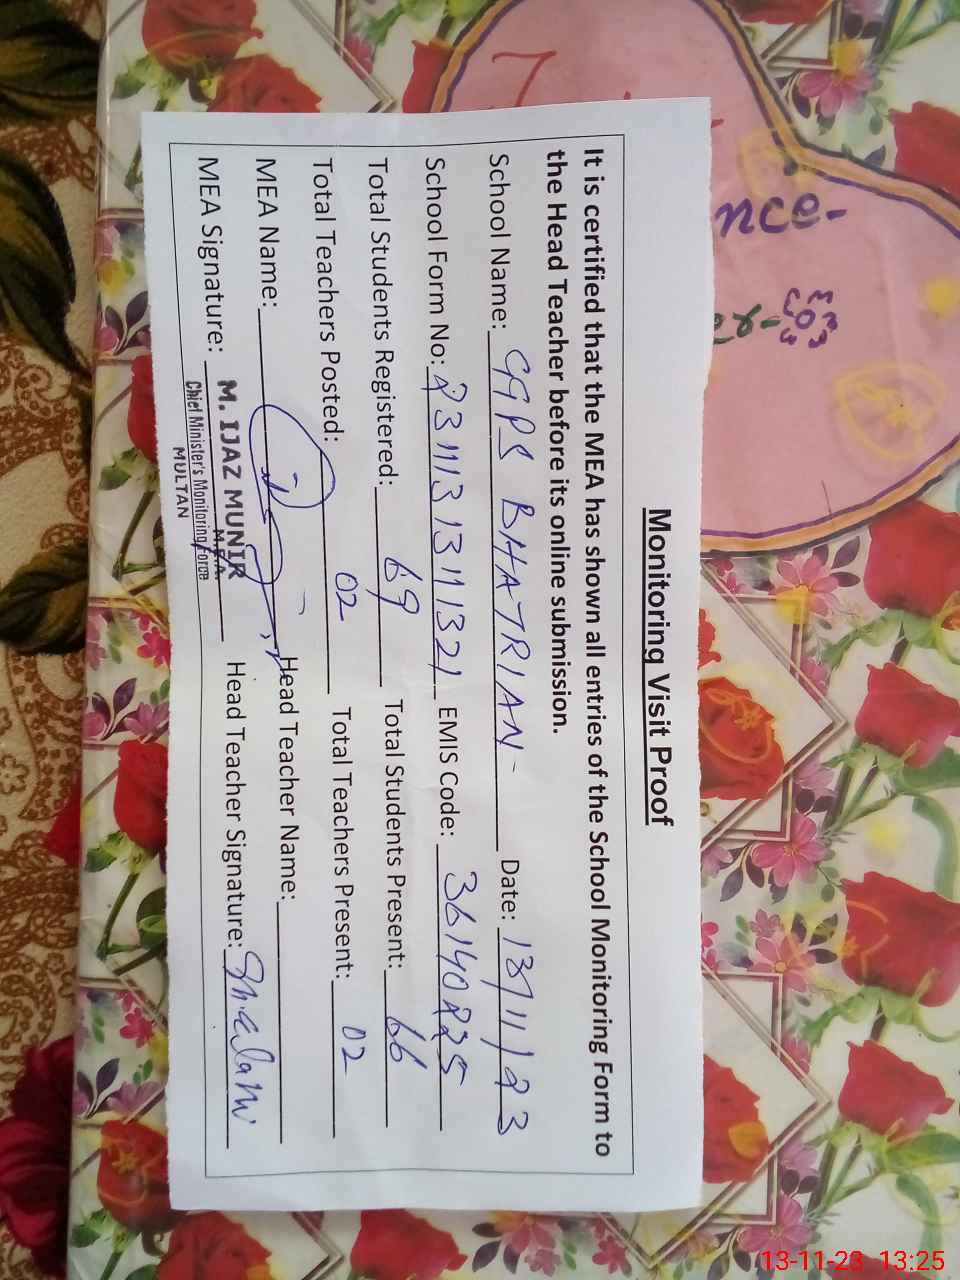 Monitoring Visit Proof
It is certified that the MEA has shown all entries of the School Monitoring Form to
the Head Teacher before its online submission.
School Name: GGPS BHATRIAN- Date: 13/11/23
School Form No: 23111313111321 EMIS Code: 36140225
Total Students Registered: 69 Total Students Present: 66
Total Teachers Posted: 02 Total Teachers Present: 02
MEA Name: Head Teacher Name:
MEA Signature: Head Teacher Signature:
M. IJAZ MUNIR
M.E.A.
Chief Minister's Monitoring Force
MULTAN
nce-
13-11-23 13:25